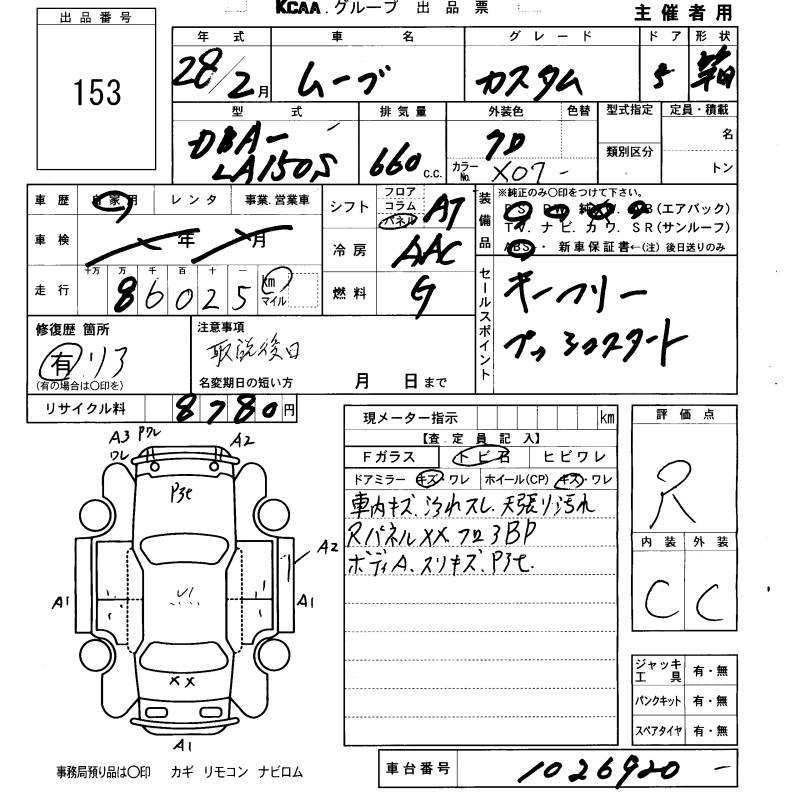 KCAA.グループ 出品票
主催者用
出品番号
153
年式 車名 グレード ドア 形状
28/2月 ムーブ カスタム 5 箱
型式 排気量 外装色 色替 型式指定 定員・積載
DBA-LA150S 660c.c. クロ
カラーNo. X07
類別区分
名
トン
車歴 自家用 レンタ 事業.営業車
シフト フロア コラム パネル AT
装備品
※純正のみ〇印をつけて下さい。
(エアバック)
TV. ナビ. カワ. SR(サンルーフ)
ABS・ 新車保証書←(注) 後日送りのみ
車検 年 月
冷房 AAC
走行 十万 万 千 百 十 一
86025 km マイル
燃料 G
セールスポイント
キーフリー
プッシュスタート
修復歴 箇所
有 リア
(有の場合は〇印を)
注意事項
取説後日
名変期日の短い方 月 日まで
リサイクル料 8780円
現メーター指示 km
【査定員記入】
Fガラス トビ石 ヒビワレ
ドアミラー キズ・ワレ ホイール(CP) キズ・ワレ
車内キズ.汚れスレ.天張り汚れ
RパネルXX フロアBP
ボディA.スリキズ.P3セ.
評価点
R
内装 外装
C C
A3 Pワレ
ワレ
A2
P3セ
A2
A1
U1
A1
XX
A1
ジャッキ工具 有・無
パンクキット 有・無
スペアタイヤ 有・無
事務局預り品は〇印 カギ リモコン ナビロム
車台番号 1026920